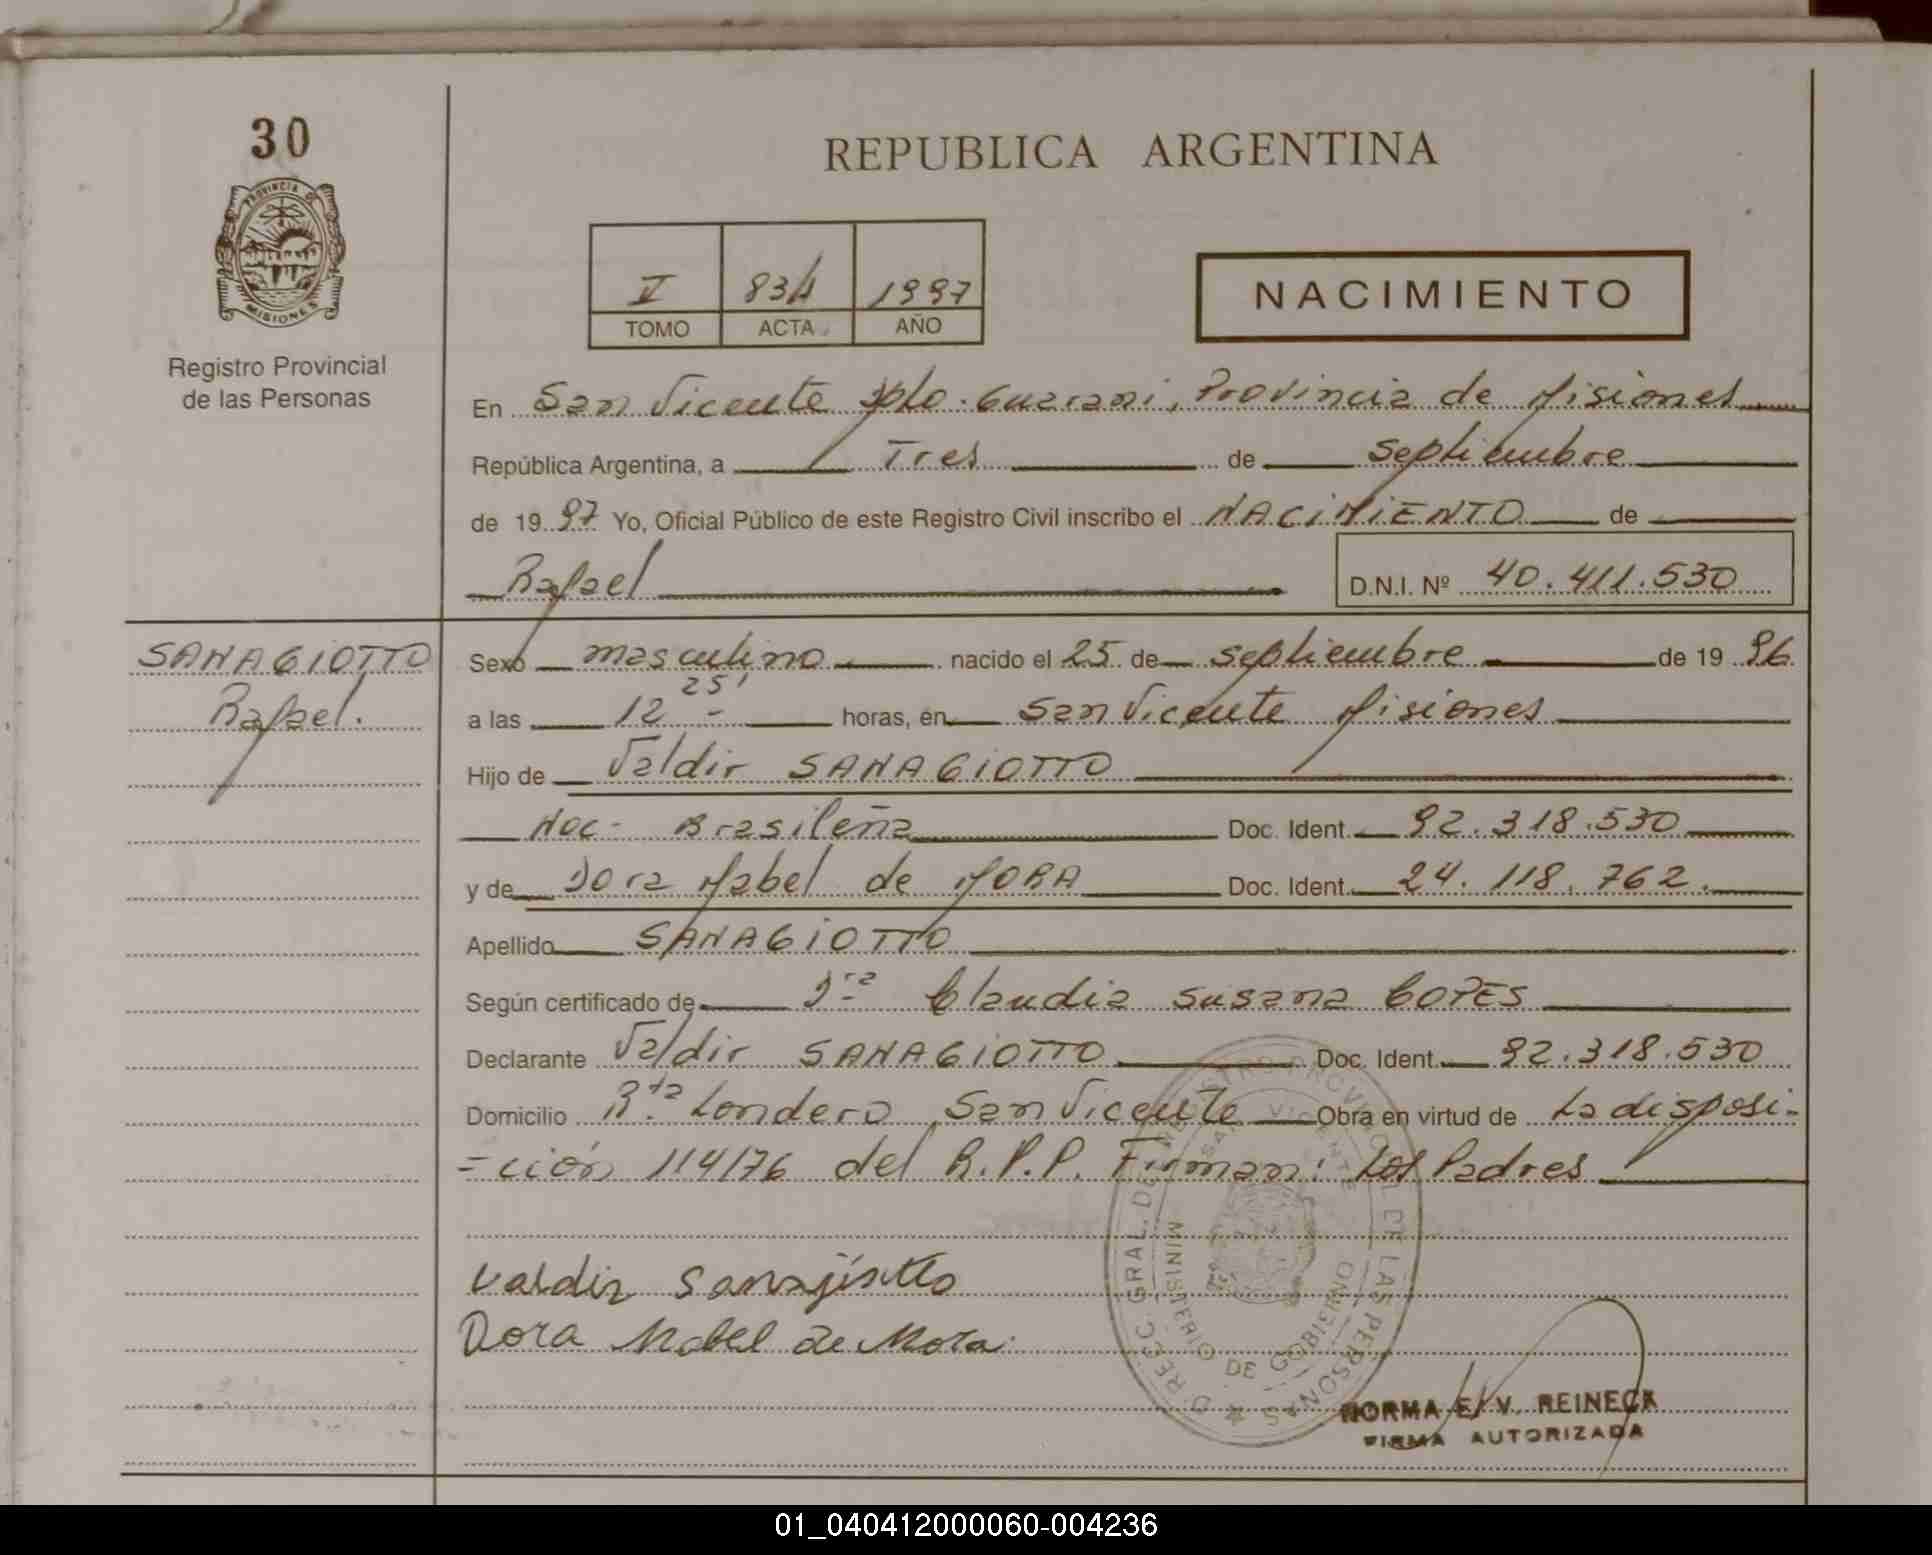 30
PROVINCIA DE
MISIONES
Registro Provincial
de las Personas
REPUBLICA ARGENTINA
V 834 1997
TOMO ACTA AÑO
NACIMIENTO
En San Vicente Dpto. Guarani, Provincia de Misiones
República Argentina, a Tres de Septiembre
de 1997 Yo, Oficial Público de este Registro Civil inscribo el NACIMIENTO de
Rafael D.N.I. Nº 40.411.530
SANAGIOTTO
Rafael.
Sexo masculino nacido el 25 de septiembre de 1996
25'
a las 12 - horas, en San Vicente Misiones
Hijo de Valdir SANAGIOTTO
Nac- Brasileña Doc. Ident. 92.318.530
y de Dora Mabel de MORA Doc. Ident. 24.118.762.
Apellido SANAGIOTTO
Según certificado de Dra Claudia Susana COPES
Declarante Valdir SANAGIOTTO Doc. Ident. 92.318.530
Domicilio Rta Londero San Vicente Obra en virtud de La disposi-
=ción 114/76 del R.P.P. Firman: Los Padres
Valdir Sanagiotto
Dora Mabel de Mora.
DIRECC. GRAL. DEL REGISTRO PROVINCIAL DE LAS PERSONAS
SAN VICENTE
MINISTERIO DE GOBIERNO
NORMA E. V. REINECK
FIRMA AUTORIZADA
01_040412000060-004236